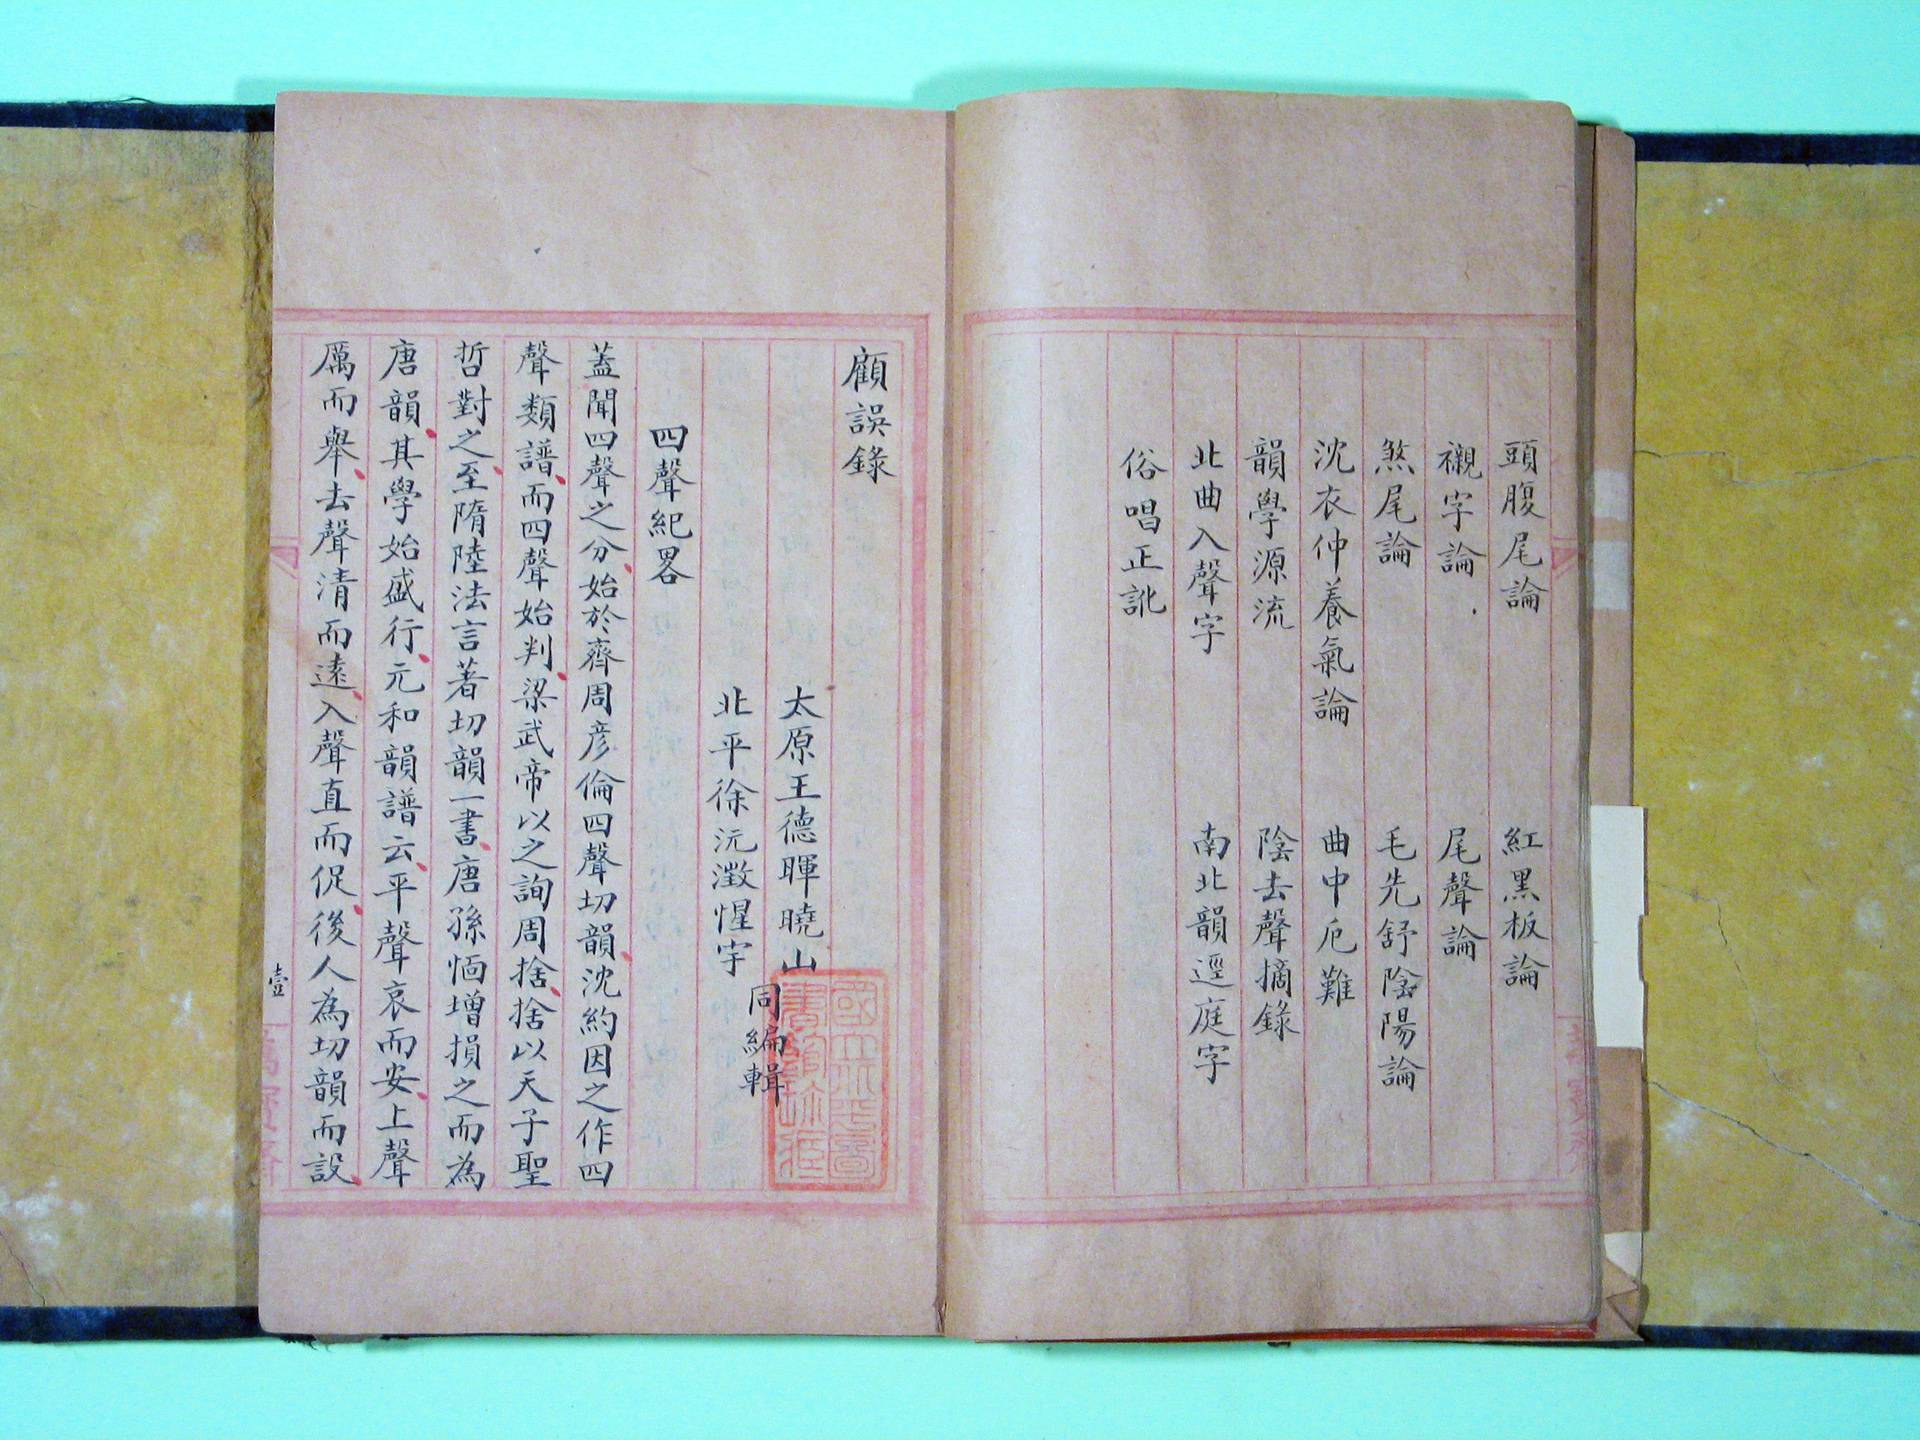 頭腹尾論 紅黑板論
襯字論 尾聲論
煞尾論 毛先舒陰陽論
沈衣仲養氣論 曲中厄難
韻學源流 陰去聲摘錄
北曲入聲字 南北韻逕庭字
俗唱正訛
顧誤錄
太原王德暉曉山
北平徐沅澂惺宇
同編輯
四聲紀畧
蓋聞四聲之分始於齊周彥倫四聲切韻沈約因之作四
聲類譜而四聲始判梁武帝以之詢周捨捨以天子聖
哲對之至隋陸法言著切韻一書唐孫愐增損之而為
唐韻其學始盛行元和韻譜云平聲哀而安上聲
厲而舉去聲清而遠入聲直而促後人為切韻而設
壹
國立北平圖書館珍藏